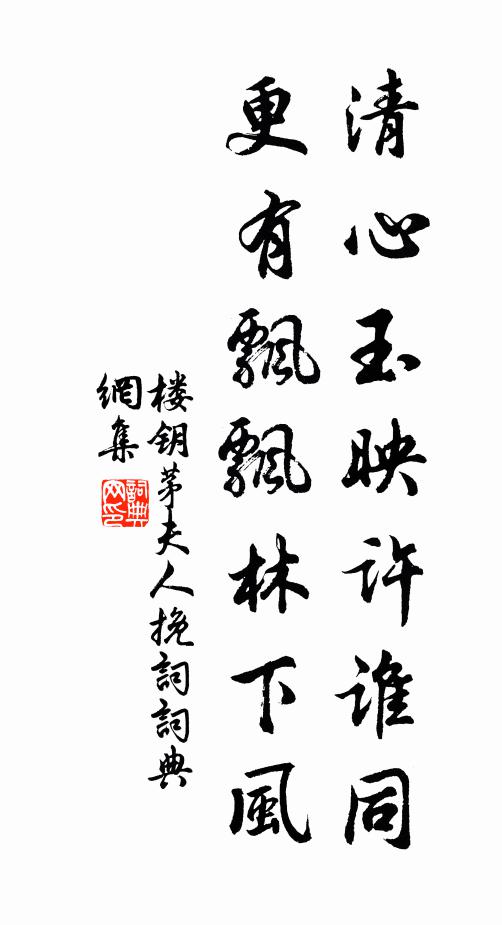 清心玉映许谁同
更有飄飄林下風
楼钥茅夫人挽詞詞典
網集
詞典
网印